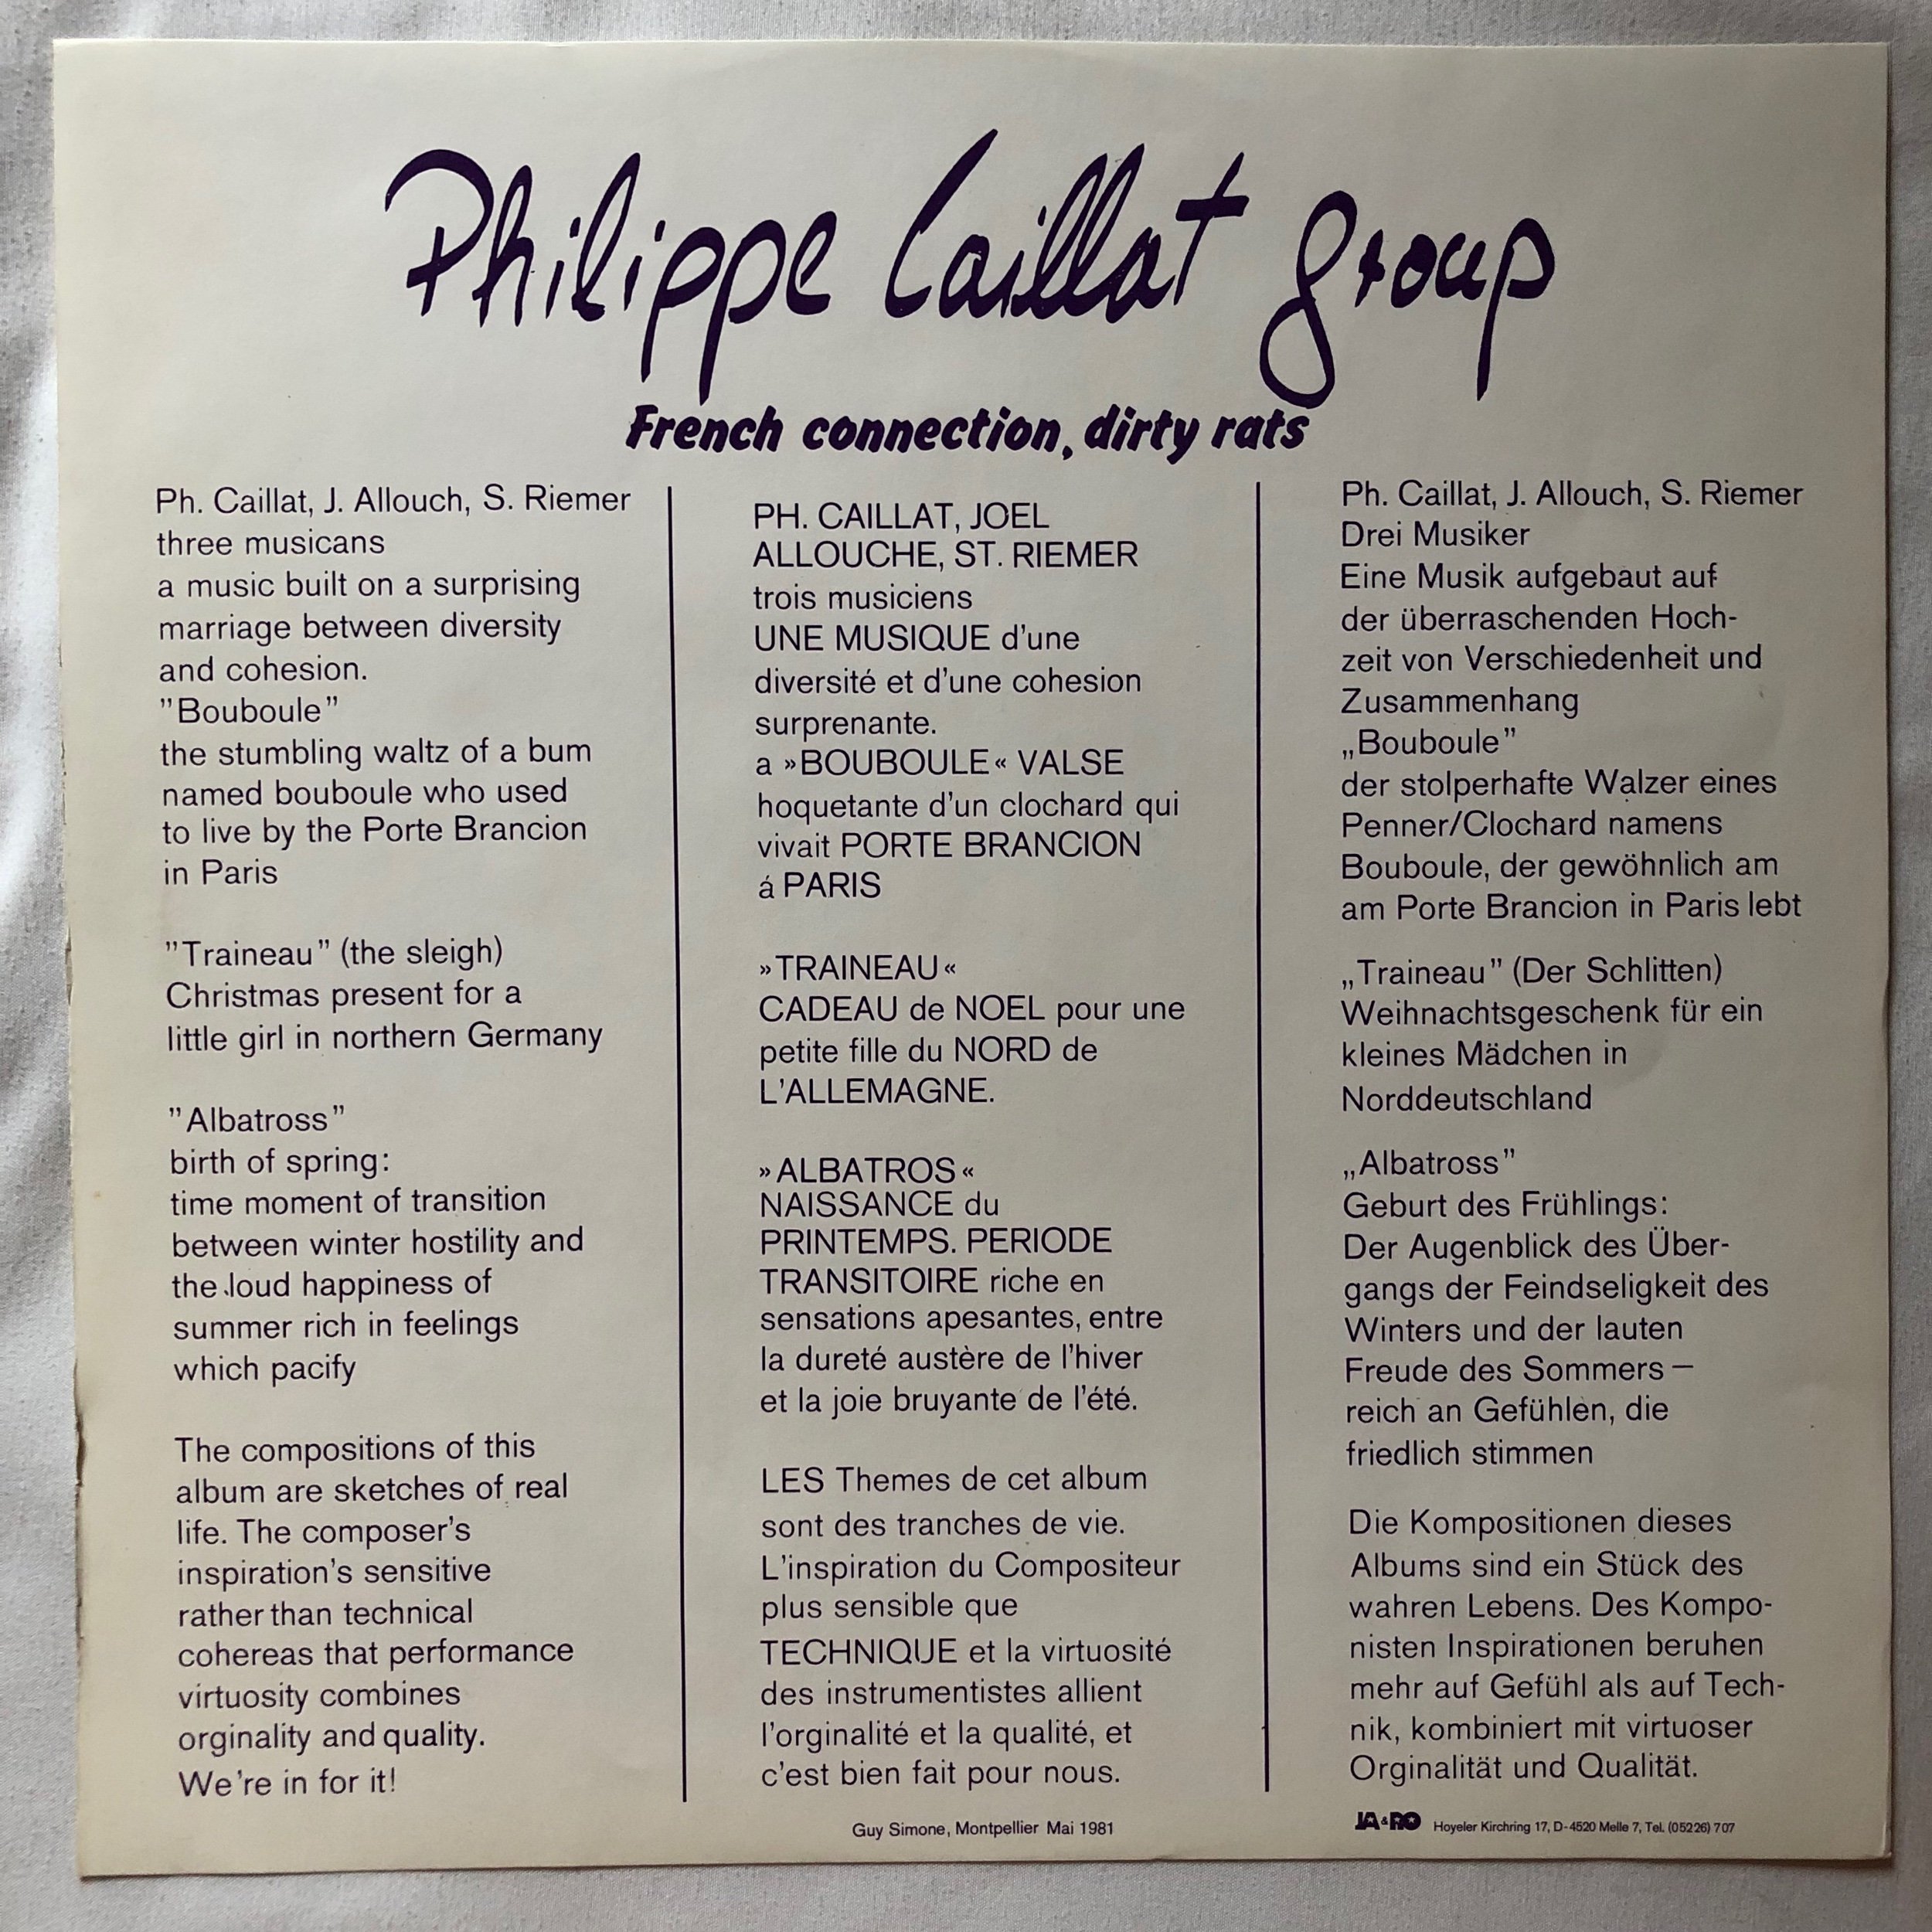 Philippe Caillat group
French connection, dirty rats
Ph. Caillat, J. Allouch, S. Riemer
three musicans
a music built on a surprising
marriage between diversity
and cohesion.
”Bouboule”
the stumbling waltz of a bum
named bouboule who used
to live by the Porte Brancion
in Paris
”Traineau” (the sleigh)
Christmas present for a
little girl in northern Germany
”Albatross”
birth of spring:
time moment of transition
between winter hostility and
the loud happiness of
summer rich in feelings
which pacify
The compositions of this
album are sketches of real
life. The composer’s
inspiration’s sensitive
rather than technical
cohereas that performance
virtuosity combines
orginality and quality.
We’re in for it!
PH. CAILLAT, JOEL
ALLOUCHE, ST. RIEMER
trois musiciens
UNE MUSIQUE d’une
diversité et d’une cohesion
surprenante.
a »BOUBOULE« VALSE
hoquetante d’un clochard qui
vivait PORTE BRANCION
á PARIS
»TRAINEAU«
CADEAU de NOEL pour une
petite fille du NORD de
L’ALLEMAGNE.
»ALBATROS«
NAISSANCE du
PRINTEMPS. PERIODE
TRANSITOIRE riche en
sensations apesantes, entre
la dureté austère de l’hiver
et la joie bruyante de l’été.
LES Themes de cet album
sont des tranches de vie.
L’inspiration du Compositeur
plus sensible que
TECHNIQUE et la virtuosité
des instrumentistes allient
l’orginalité et la qualité, et
c’est bien fait pour nous.
Guy Simone, Montpellier Mai 1981
Ph. Caillat, J. Allouch, S. Riemer
Drei Musiker
Eine Musik aufgebaut auf
der überraschenden Hoch-
zeit von Verschiedenheit und
Zusammenhang
„Bouboule”
der stolperhafte Walzer eines
Penner/Clochard namens
Bouboule, der gewöhnlich am
am Porte Brancion in Paris lebt
„Traineau” (Der Schlitten)
Weihnachtsgeschenk für ein
kleines Mädchen in
Norddeutschland
„Albatross”
Geburt des Frühlings:
Der Augenblick des Über-
gangs der Feindseligkeit des
Winters und der lauten
Freude des Sommers —
reich an Gefühlen, die
friedlich stimmen
Die Kompositionen dieses
Albums sind ein Stück des
wahren Lebens. Des Kompo-
nisten Inspirationen beruhen
mehr auf Gefühl als auf Tech-
nik, kombiniert mit virtuoser
Orginalität und Qualität.
JA&RO Hoyeler Kirchring 17, D-4520 Melle 7, Tel. (05226) 707